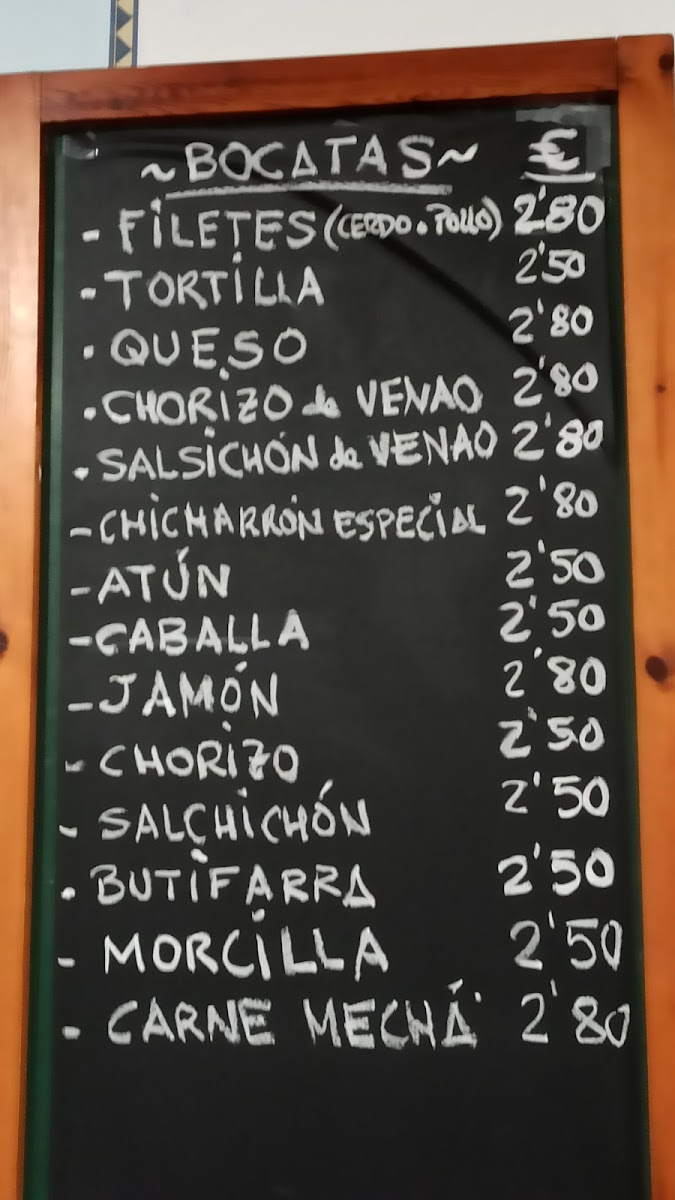 ~BOCATAS~ €
- FILETES (CERDO o POLLO) 2'80
- TORTILLA 2'50
. QUESO 2'80
. CHORIZO de VENAO 2'80
. SALSICHÓN de VENAO 2'80
- CHICHARRÓN ESPECIAL 2'80
- ATÚN 2'50
- CABALLA 2'50
- JAMÓN 2'80
- CHORIZO 2'50
- SALCHICHÓN 2'50
. BUTIFARRA 2'50
- MORCILLA 2'50
- CARNE MECHÁ 2'80